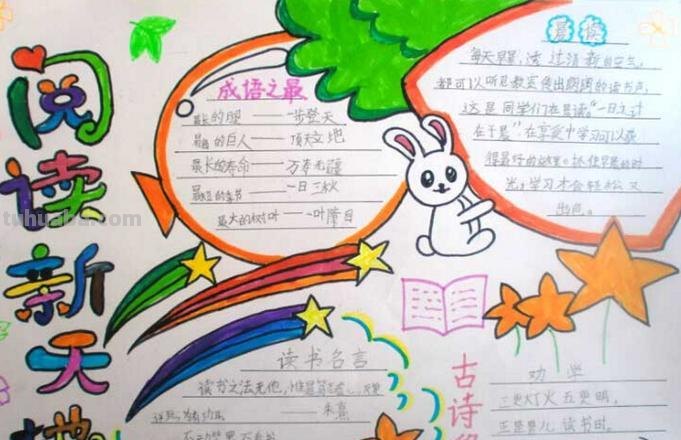 阅读新天地
成语之最
最长的腿——一步登天
最高的巨人——顶天立地
最长的寿命——万寿无疆
最短的季节——一日三秋
最大的树叶——一叶障目
晨读
每天早晨,
都可以听见教室传出朗朗的读书声,
这是同学们在晨读。"一日之计
在于晨"在
光,学习才会轻松又
出色。
读书名言
读书之法无他,惟是笃志虚心,反复
——朱熹
古诗
劝学
三更灯火五更鸡,
正是男儿读书时。
tuhuabu.com